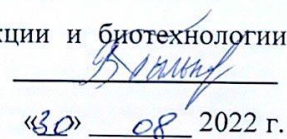 кции и биотехнологии
«30» 08 2022 г.